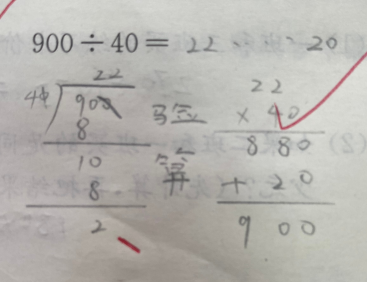 900÷40＝22……20
22
40 900
8
10
8
2
验
算
22
×40
880
+20
900